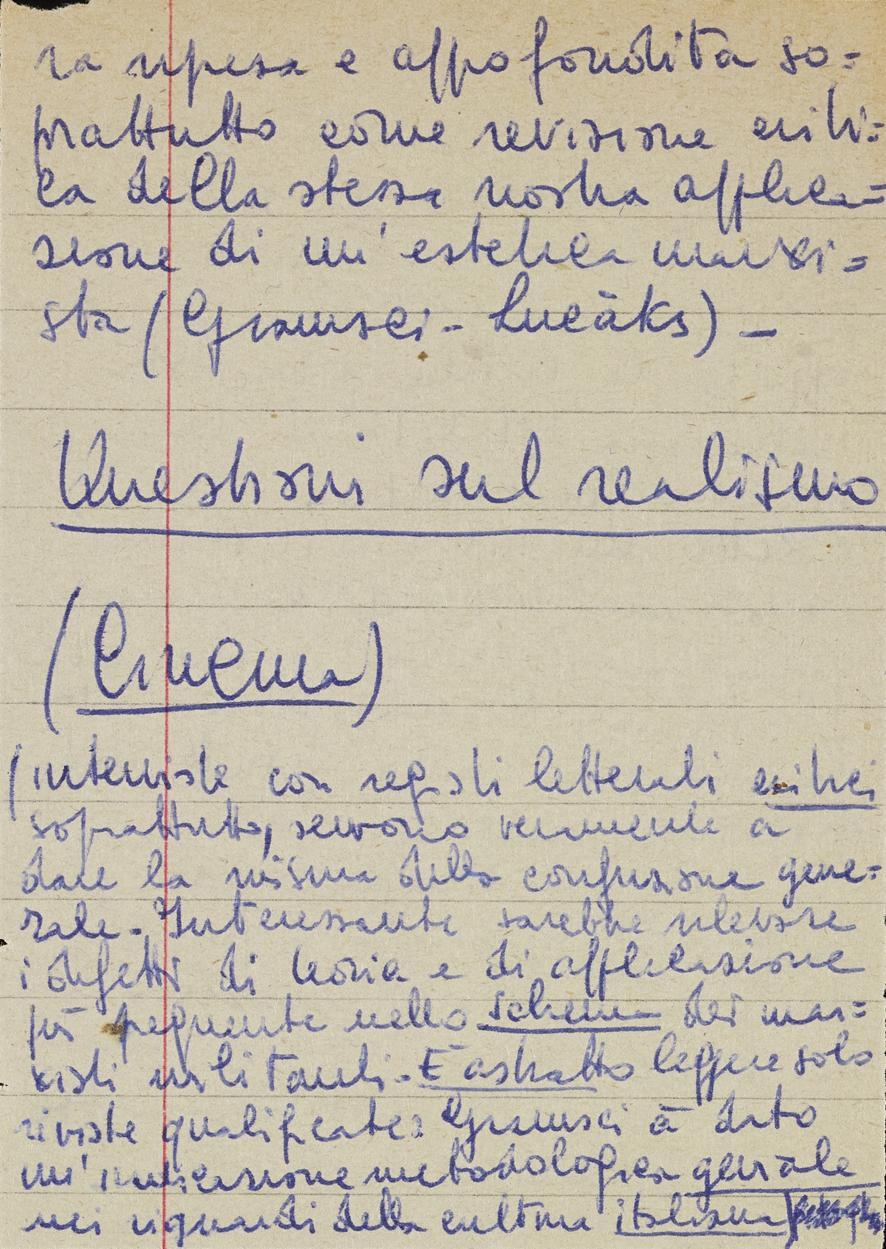 ra ripresa e appofondita so=
prattutto come revisione criti=
ca della stessa nostra applica=
zione di un'estetica marxi=
sta (Gramsci - Lucàks) -
Questioni sul realismo
(Cinema)
(interviste con registi letterati critici
soprattutto, servono veramente a
dare la misura della confusione gene=
rale - Interessante sarebbe rilevare
i difetti di teoria e di applicazione
più frequente nello schema dei mar=
xisti militanti - È astratto leggere solo
riviste qualificate: Gramsci à dato
un'indicazione metodologica geniale
nei riguardi della cultura italiana)